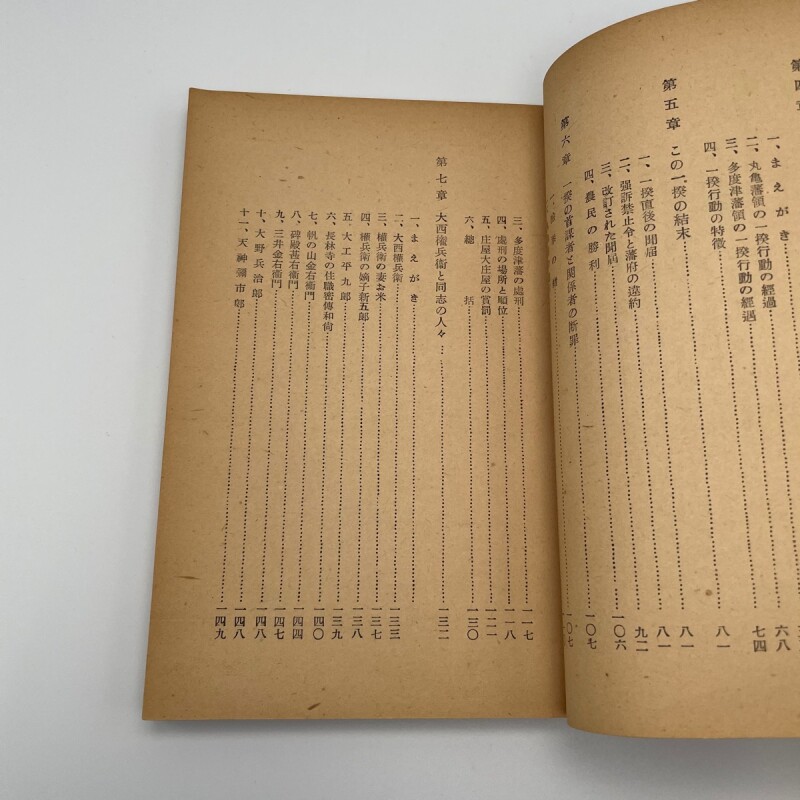 第四章
一、まえがき
二、丸亀藩領の一揆行動の経過……六八
三、多度津藩領の一揆行動の経過……七四
四、一揆行動の特徴……八一
第五章 この一揆の結末……八一
一、一揆直後の聞届……八一
二、強訴禁止令と藩府の違約……九二
三、改訂された聞届……一〇六
四、農民の勝利……一〇七
第六章 一揆の首謀者と関係者の断罪……一〇七
三、多度津藩の處刑……一一七
四、處刑の場所と順位……一一八
五、庄屋大庄屋の賞罰……一二一
六、總括……一三〇
第七章 大西権兵衞と同志の人々……一三二
一、まえがき
二、大西権兵衞……一三三
三、権兵衞の妻お米……一三七
四、権兵衞の嫡子新五郎……一三八
五、大工平九郎……一三九
六、長林寺の住職密傳和尚……一四〇
七、帆の山金右衞門……一四四
八、碑殿甚右衞門……一四四
九、三井金右衞門……一四七
十、大野兵治郎……一四八
十一、天神彌市郎……一四九